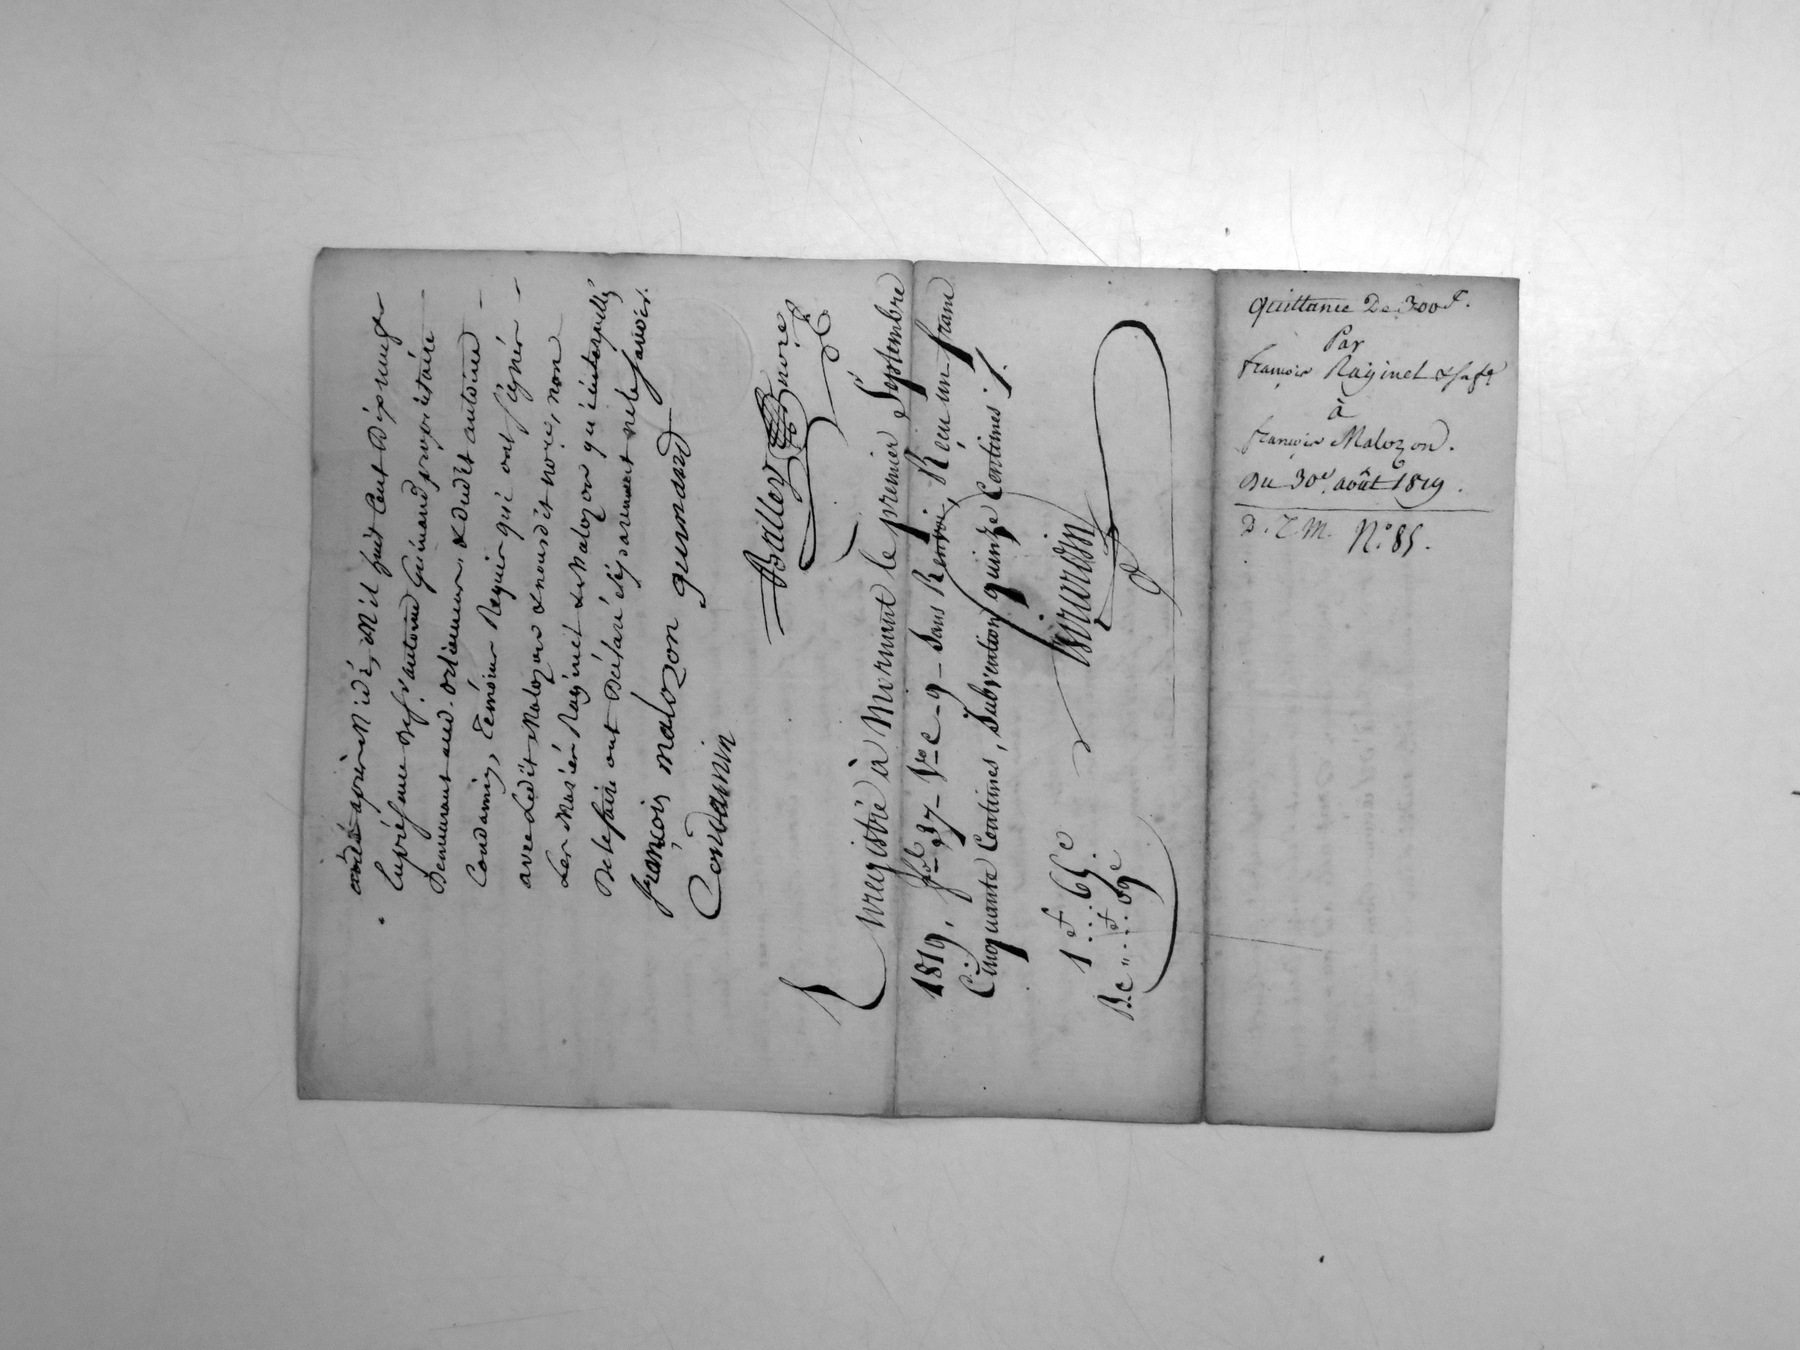 après Midi, Mil huit Cent Dix neuf
En présence de S.r antoine Guinand propriétaire
Demeurant aud. orlienneur, & dudit antoine
Condamin, Témoins Requis qui ont signés
avec Ledit Malozon & nousdit no.re, non
Les Mariés Raginel & Malozon qui interpellés
De le faire ont Déclaré séparement ne le savoir.
françois malozon guinand
Condamin
Balley no.re
Enregistré à Mornant le premier Septembre
1819, fol. 37 - V.so C. 9 - Sans Renvoi, Reçu un franc
Cinquante Centimes, Subvention quinze Centimes ./.
1 f 65 c
09 c
Quittance De 300 f.
Par
françois Raginel & sa fe
à
françois Malozon.
Du 30e. août 1819.
D. T. M. N.o 85.